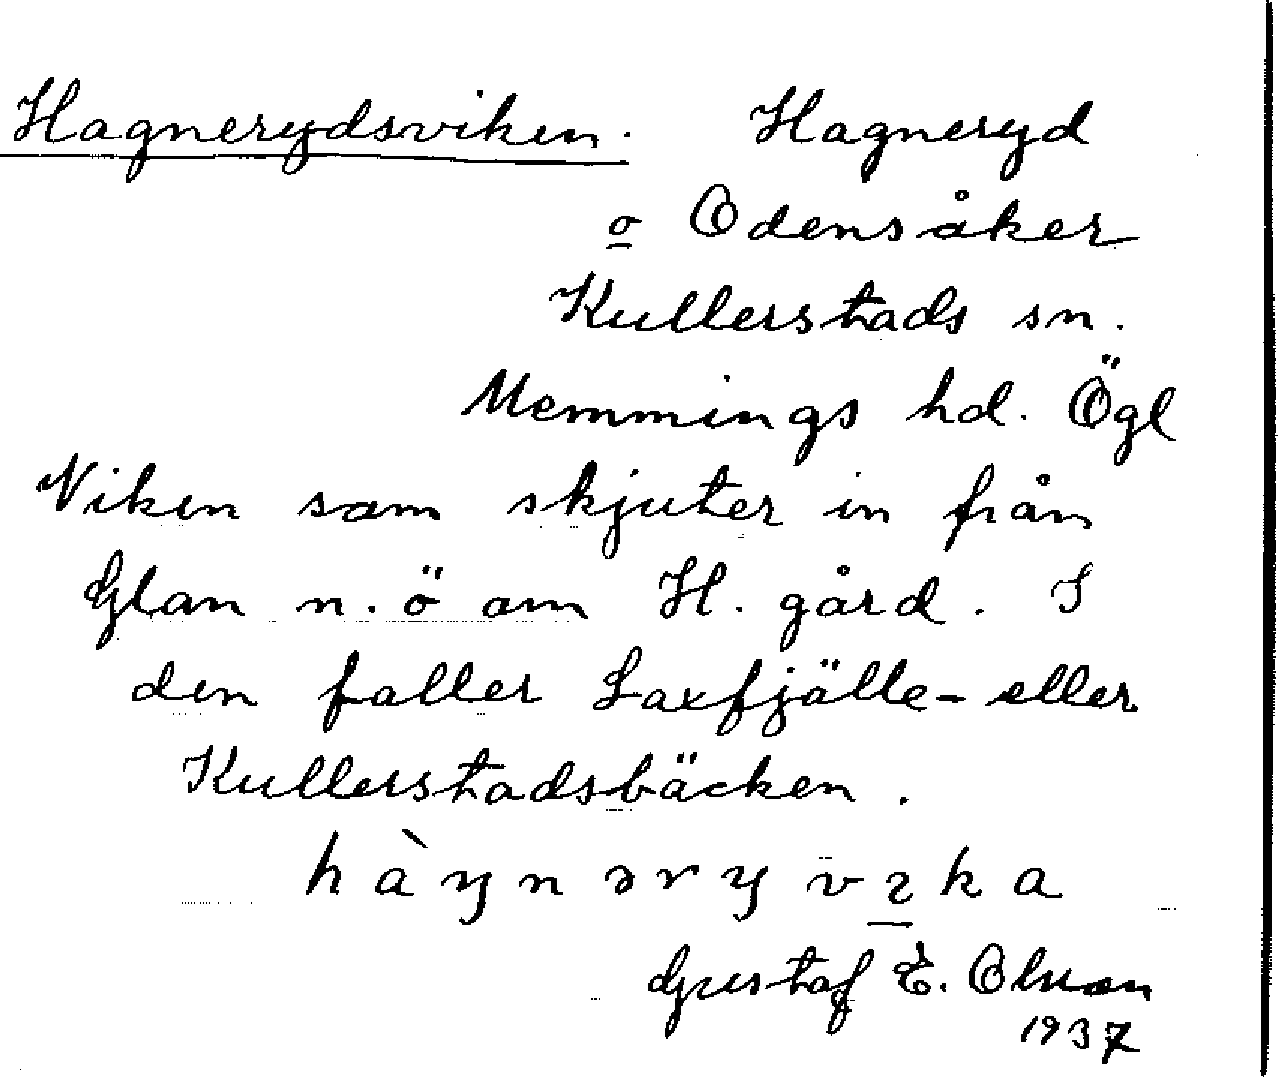 Hagnerydsviken. Hagneryd
o Odensåker
Kullerstads sn.
Memmings hd. Ögl
Viken som skjuter in från
Glan n.ö om H. gård. I
den faller Laxfjälle- eller
Kullerstadsbäcken.
Gustaf E. Olsson
1937